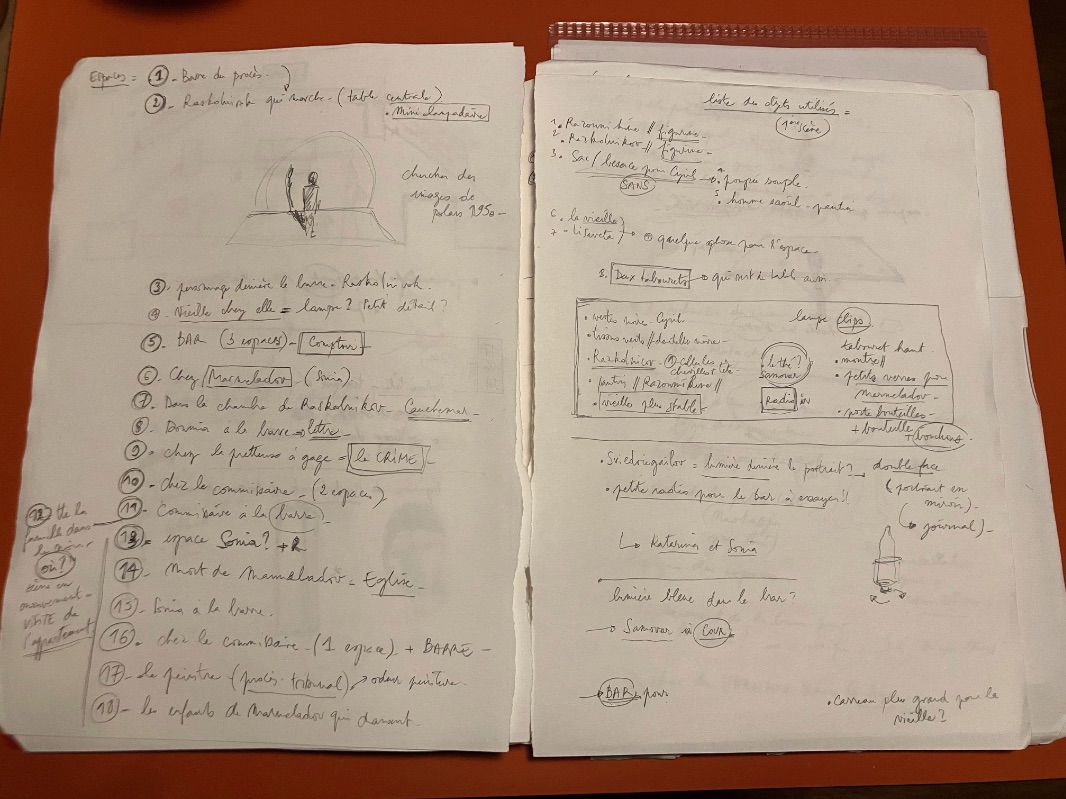 Espaces = 1 - Barre du procès.
2 - Raskolnikov qui marche - (table centrale)
• Mini lampadaire
chercher des
images de
polars 1950 -
3 - personnage derrière la barre - Raskolnikov.
4 - Vieille chez elle = lampe? Petit détail?
5 - BAR (3 espaces) - Comptoir
6 - Chez Marmeladov - (Sonia)
7 - Dans la chambre de Raskolnikov - Cauchemar -
8 - Dounia à la barre → lettre -
9 - chez la prêteuse à gage = le CRIME -
10 - chez le commissaire - (2 espaces)
11 - Commissaire à la barre
12 tte la
famille dans
où?
scène en
mouvement -
VISITE de
l'appartement
13 = espace Sonia? +
14 - Mort de Marmeladov = Eglise -
15 - Sonia à la barre.
16 - chez le commissaire - (1 espace) + BARRE -
17 - le peintre (procès - tribunal) → odeur peinture.
18 - les enfants de Marmeladov qui dansent -
liste des objets utilisés =
1ère scène
1 • Razoumikhine // figurine -
2 • Raskolnikov // figurine -
3 • Sac / besace pour Cyril → 4 • poupée souple -
SANS
5 • homme saoul - pantin
6 • la vieille
7 - Lisaveta → quelque chose pour l'espace
8 • Deux tabourets → qui sert de table aussi.
• vestes noires - Cyril
• tissus verts // dentelles noires -
• Raskolnicov -
• pantin // Razoumikhine //
• vieille plus stable -
lampe clips
• le thé?
Samovar
Radio
tabouret haut
• montre //
• petits verres pour
Marmeladov -
• porte bouteilles -
+ bouteille
+ bouchons
• Sviedrigaïlov = lumière derrière le portrait? → double face
(portrait en
miroir) -
(→ journal) -
• petites radios pour le bar à essayer!!
→ Katerina et Sonia
lumière bleue dans le bar?
→ Samovar à Cour
→ BAR pour
• carreau plus grand pour la
vieille?